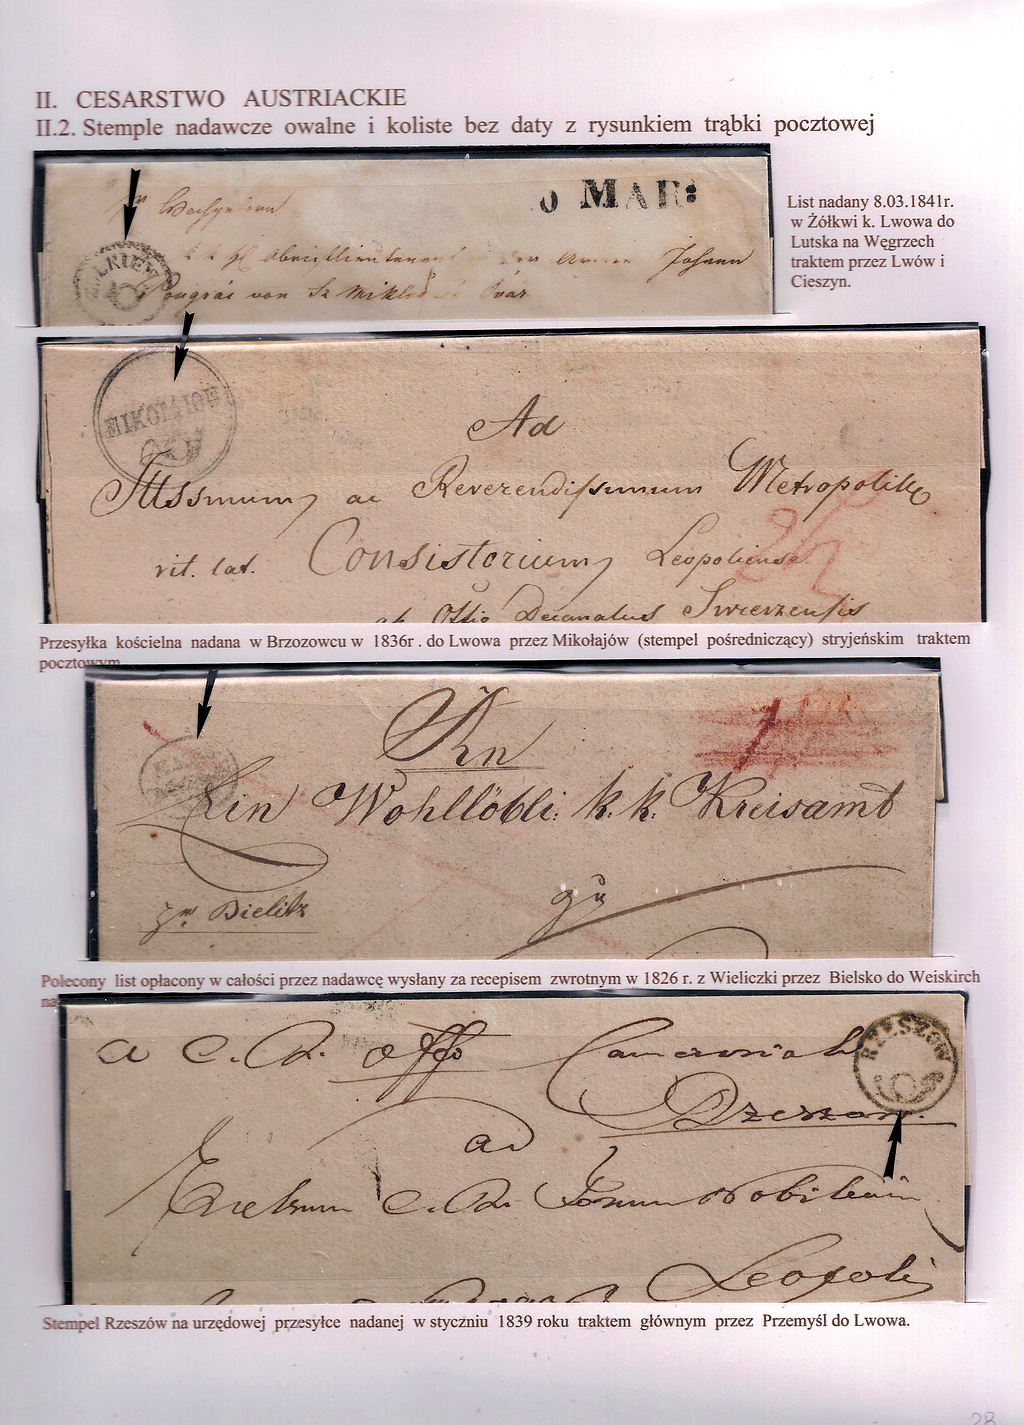 II. CESARSTWO AUSTRIACKIE
II.2. Stemple nadawcze owalne i koliste bez daty z rysunkiem trąbki pocztowej
MAR:
Johann
von Sz Miklos
List nadany 8.03.1841r.
w Żółkwi k. Lwowa do
Lutska na Węgrzech
traktem przez Lwów i
Cieszyn.
Ad
ac Reverendissimum
rit. lat. Consistorium Leopoliense
Decanatus
Przesyłka kościelna nadana w Brzozowcu w 1836r . do Lwowa przez Mikołajów (stempel pośredniczący) stryjeńskim traktem
pocztowym
An
Ein Wohllöbli: k. k. Kreisamt
zu
Bielitz
Polecony list opłacony w całości przez nadawcę wysłany za recepisem zwrotnym w 1826 r. z Wieliczki przez Bielsko do Weiskirch
na
RZESZOW
a C. R. offo
ad
C. R. Forum Nobilium
Leopoli
Stempel Rzeszów na urzędowej przesyłce nadanej w styczniu 1839 roku traktem głównym przez Przemyśl do Lwowa.
28